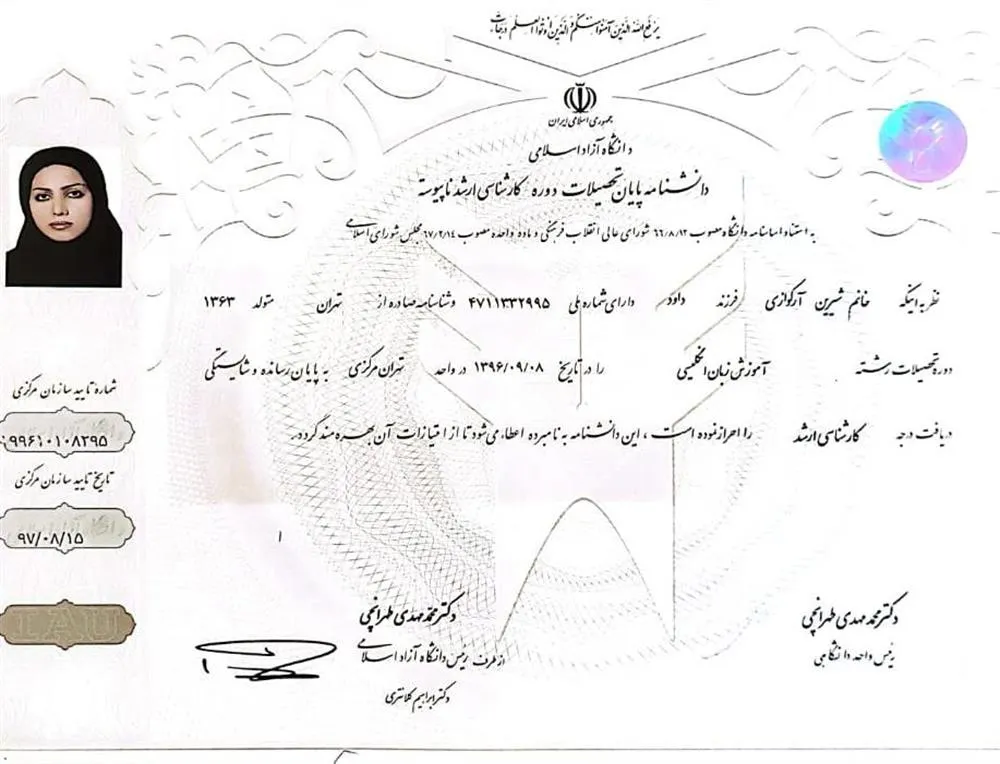 یرفع الله الذین آمنوا منکم والذین اوتوا العلم درجات
جمهوری اسلامی ایران
دانشگاه آزاد اسلامی
دانشنامه پایان تحصیلات دوره کارشناسی ارشد ناپیوسته
به استناد اساسنامه دانشگاه مصوب ۶۶/۸/۱۲ شورای عالی انقلاب فرهنگی و ماده واحده مصوب ۶۷/۲/۱۴ مجلس شورای اسلامی
نظر به اینکه خانم شیرین آرکوازی فرزند داود دارای شماره ملی ۴۷۱۱۳۳۲۹۹۵ و شناسنامه صادره از تهران متولد ۱۳۶۳
دوره تحصیلات رشته آموزش زبان انگلیسی را در تاریخ ۱۳۹۶/۰۹/۰۸ در واحد تهران مرکزی به پایان رسانده و شایستگی
دریافت درجه کارشناسی ارشد را احراز نموده است، این دانشنامه به نامبرده اعطاء می شود تا از امتیازات آن بهره مند گردد.
شماره تایید سازمان مرکزی
۹۹۶۱۰۱۰۸۲۹۵
تاریخ تایید سازمان مرکزی
۹۷/۰۸/۱۵
IAU
دکتر محمد مهدی طهرانچی
رئیس واحد دانشگاهی
دکتر محمد مهدی طهرانچی
رئیس دانشگاه آزاد اسلامی
از طرف
دکتر ابراهیم کلانتری